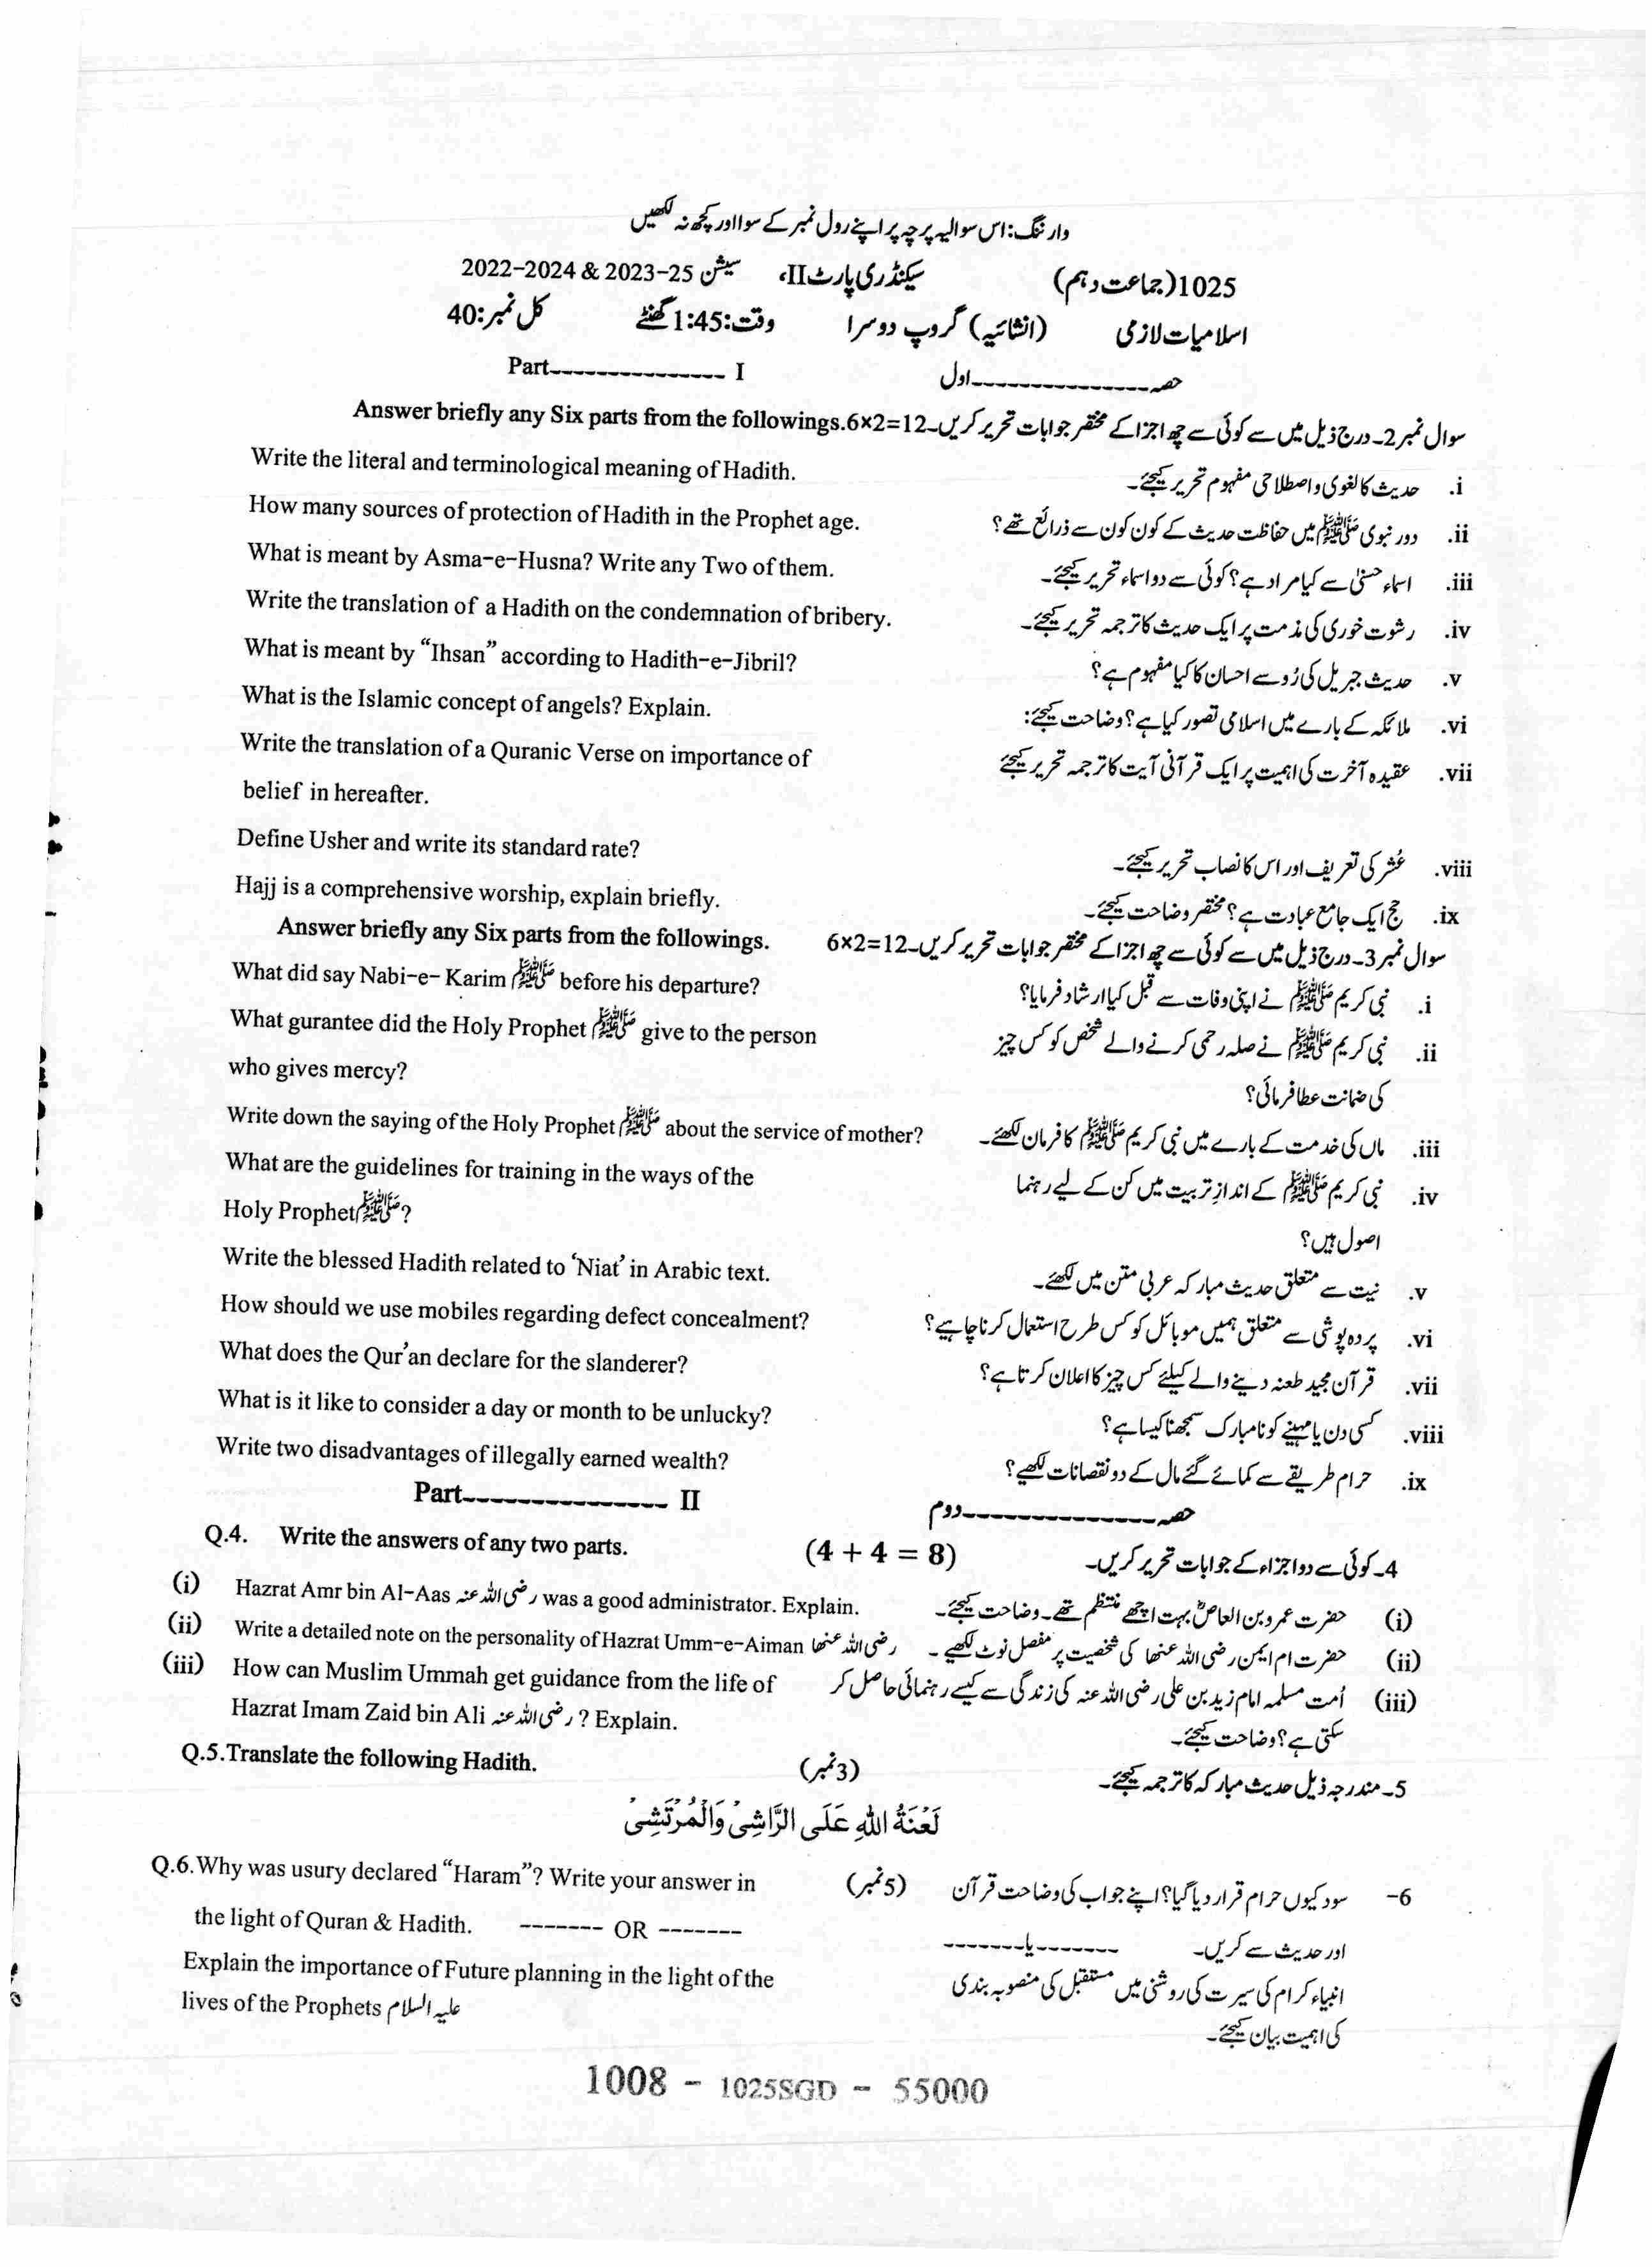 وارننگ: اس سوالیہ پرچہ پر اپنے رول نمبر کے سوا اور کچھ نہ لکھیں
1025(جماعت دہم) سیکنڈری پارٹ II، سیشن 2023-25 & 2022-2024
اسلامیات لازمی (انشائیہ) گروپ دوسرا وقت: 1:45 گھنٹے کل نمبر: 40
Part--------------- I حصہ---------------اول
Answer briefly any Six parts from the followings.6×2=12 سوال نمبر 2۔ درج ذیل میں سے کوئی سے چھ اجزا کے مختصر جوابات تحریر کریں۔
Write the literal and terminological meaning of Hadith. i. حدیث کا لغوی و اصطلاحی مفہوم تحریر کیجئے۔
How many sources of protection of Hadith in the Prophet age. ii. دور نبوی ﷺ میں حفاظت حدیث کے کون کون سے ذرائع تھے؟
What is meant by Asma-e-Husna? Write any Two of them. iii. اسماء حسنیٰ سے کیا مراد ہے؟ کوئی سے دو اسماء تحریر کیجئے۔
Write the translation of a Hadith on the condemnation of bribery. iv. رشوت خوری کی مذمت پر ایک حدیث کا ترجمہ تحریر کیجئے۔
What is meant by “Ihsan” according to Hadith-e-Jibril? v. حدیث جبریل کی رُو سے احسان کا کیا مفہوم ہے؟
What is the Islamic concept of angels? Explain. vi. ملائکہ کے بارے میں اسلامی تصور کیا ہے؟ وضاحت کیجئے:
Write the translation of a Quranic Verse on importance of vii. عقیدہ آخرت کی اہمیت پر ایک قرآنی آیت کا ترجمہ تحریر کیجئے
belief in hereafter.
Define Usher and write its standard rate? viii. عُشر کی تعریف اور اس کا نصاب تحریر کیجئے۔
Hajj is a comprehensive worship, explain briefly. ix. حج ایک جامع عبادت ہے؟ مختصر وضاحت کیجئے۔
Answer briefly any Six parts from the followings. 6×2=12 سوال نمبر 3۔ درج ذیل میں سے کوئی سے چھ اجزا کے مختصر جوابات تحریر کریں۔
What did say Nabi-e- Karim ﷺ before his departure? i. نبی کریم ﷺ نے اپنی وفات سے قبل کیا ارشاد فرمایا؟
What gurantee did the Holy Prophet ﷺ give to the person ii. نبی کریم ﷺ نے صلہ رحمی کرنے والے شخص کو کس چیز
who gives mercy? کی ضمانت عطا فرمائی؟
Write down the saying of the Holy Prophet ﷺ about the service of mother? iii. ماں کی خدمت کے بارے میں نبی کریم ﷺ کا فرمان لکھئے۔
What are the guidelines for training in the ways of the iv. نبی کریم ﷺ کے اندازِ تربیت میں کن کے لیے رہنما
Holy Prophet ﷺ? اصول ہیں؟
Write the blessed Hadith related to ‘Niat’ in Arabic text. v. نیت سے متعلق حدیث مبارکہ عربی متن میں لکھئے۔
How should we use mobiles regarding defect concealment? vi. پردہ پوشی سے متعلق ہمیں موبائل کو کس طرح استعمال کرنا چاہیے؟
What does the Qur’an declare for the slanderer? vii. قرآن مجید طعنہ دینے والے کیلئے کس چیز کا اعلان کرتا ہے؟
What is it like to consider a day or month to be unlucky? viii. کسی دن یا مہینے کو نامبارک سمجھنا کیسا ہے؟
Write two disadvantages of illegally earned wealth? ix. حرام طریقے سے کمائے گئے مال کے دو نقصانات لکھیے؟
Part--------------- II حصہ---------------دوم
Q.4. Write the answers of any two parts. (4 + 4 = 8) 4۔ کوئی سے دو اجزاء کے جوابات تحریر کریں۔
(i) Hazrat Amr bin Al-Aas رضی اللہ عنہ was a good administrator. Explain. (i) حضرت عمرو بن العاصؓ بہت اچھے منتظم تھے۔ وضاحت کیجئے۔
(ii) Write a detailed note on the personality of Hazrat Umm-e-Aiman رضی اللہ عنھا (ii) حضرت ام ایمن رضی اللہ عنھا کی شخصیت پر مفصل نوٹ لکھیے۔
(iii) How can Muslim Ummah get guidance from the life of (iii) اُمت مسلمہ امام زید بن علی رضی اللہ عنہ کی زندگی سے کیسے رہنمائی حاصل کر
Hazrat Imam Zaid bin Ali رضی اللہ عنہ ? Explain. سکتی ہے؟ وضاحت کیجئے۔
Q.5.Translate the following Hadith. (3نمبر) 5۔ مندرجہ ذیل حدیث مبارکہ کا ترجمہ کیجئے۔
لَعْنَةُ اللهِ عَلَى الرَّاشِىْ وَالْمُرْتَشِىْ
Q.6.Why was usury declared “Haram”? Write your answer in (5نمبر) 6- سود کیوں حرام قرار دیا گیا؟ اپنے جواب کی وضاحت قرآن
the light of Quran & Hadith. ------- OR ------- اور حدیث سے کریں۔ -------یا-------
Explain the importance of Future planning in the light of the انبیاء کرام کی سیرت کی روشنی میں مستقبل کی منصوبہ بندی
lives of the Prophets علیہ السلام کی اہمیت بیان کیجئے۔
1008 - 1025SGD - 55000